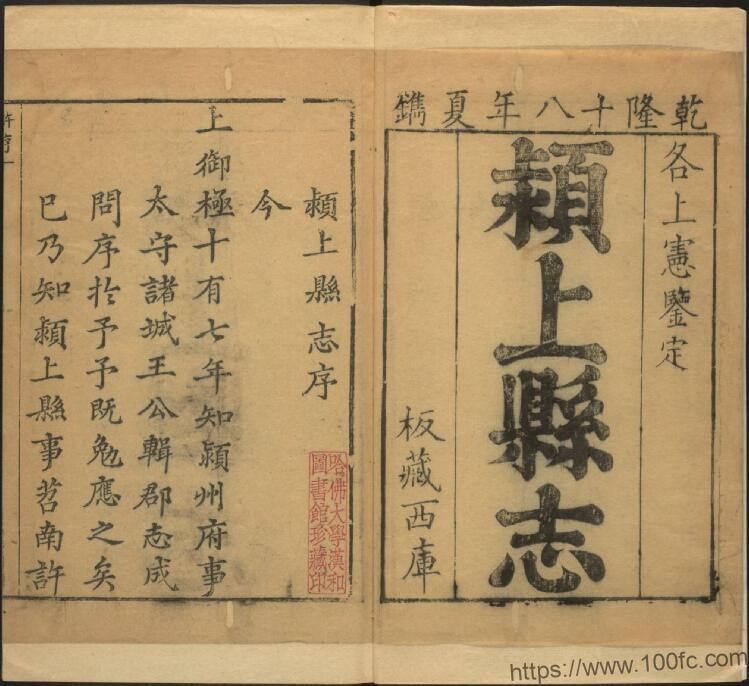 乾隆十八年夏鐫
各上憲鑒定
潁上縣志
板藏西庫
潁上縣志序
今
上御極十有七年知潁州府事
太守諸城王公輯郡志成
問序於予予既勉應之矣
已乃知潁上縣事苕南許
哈佛大學漢和
圖書館珍藏印
https://www.100fc.com